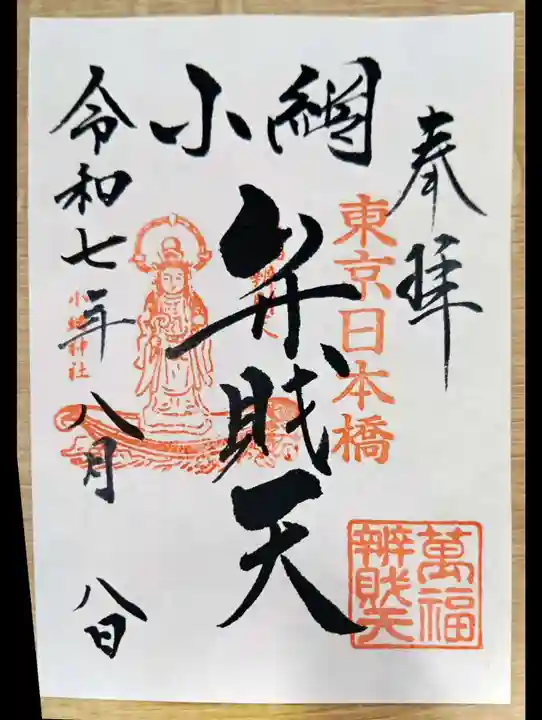 奉拝
東京日本橋
小網
弁財天
令和七年
八月
八日
小網神社
萬福
辨財天